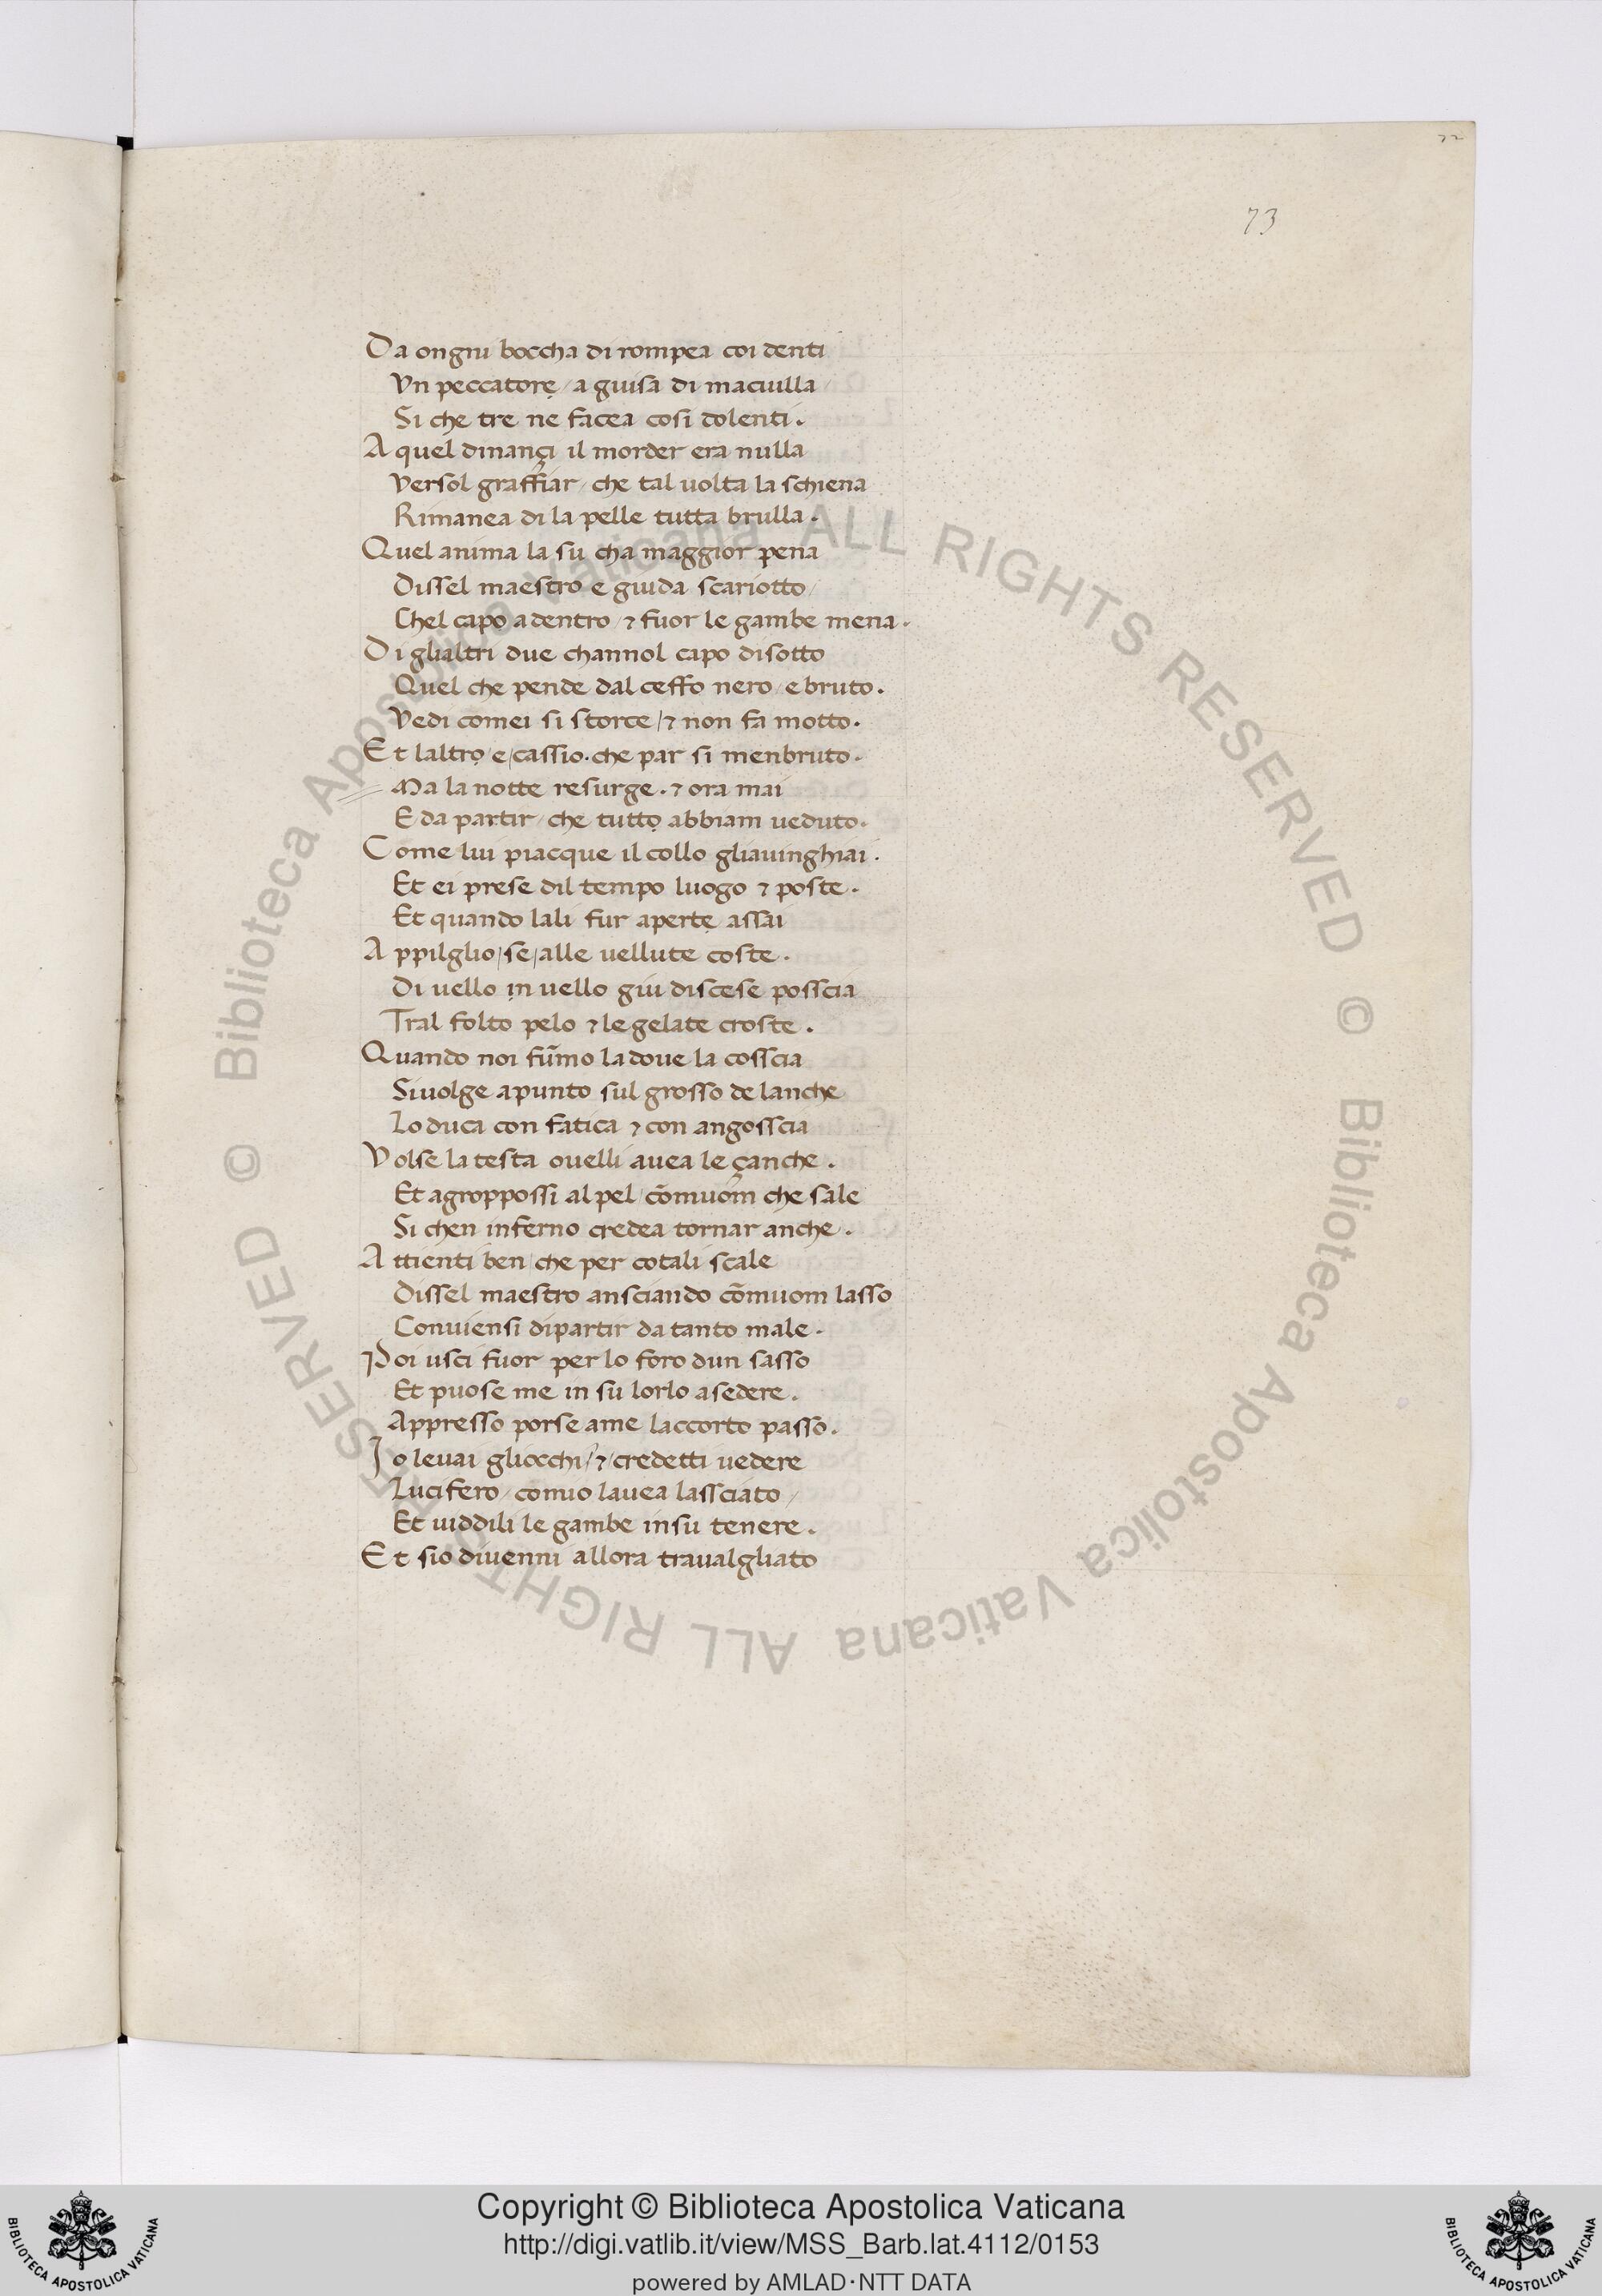 72
73
Da ongni boccha dirompea coi denti
Vn peccatorẹ / a guisa di maciulla /
Si che tre ne facea cosi dolenti.
A quel dinançi il morder era nulla
Versol graffiar / che tal uolta la schiena
Rimanea di la pelle tutta brulla.
Quel anima la su cha maggior pena
Dissel maestro e giuda scariotto /
Chel capo a dentro / ⁊ fuor le gambe mena.
Di glialtri due channol capo disotto
Quel che pende dal ceffo nero / e bruto.
Vedi comei si storce / ⁊ non fa motto.
Et laltrọ / e / cassio. che par si menbruto.
Ma la notte resurge. ⁊ ora mai
E da partir / che tuttọ abbiam ueduto.
Come lui piacque il collo gliauinghiai.
Et ei prese dil tempo luogo ⁊ poste.
Et quando lali fur apertẹ assai
Appilglio / se / alle uellute coste.
Di uello ịn uello giu discese posscia
Tral folto pelo ⁊ le gelate croste.
Quando noi fũmo la doue la cosscia
Siuolge apunto sul grosso de lanche
Lo duca con fatica ⁊ con angosscia
Volse la testa ouelli auea le çanche.
Et agroppossi al pel / cõmuom che sale
Si chen inferno credea tornar anche.
Attienti ben / che per cotali scale
Dissel maestro ansciando cõmuom lasso
Conuiensi dipartir da tanto male.
Poi usci fuor per lo foro dun sasso
Et puose me in su lorlo a sedere.
Appresso porse ame laccorto passo.
Io leuai gliocchi / ⁊ / credetti uedere
Lucifero / comio lauea lassciato /
Et uiddili le gambe insu tenere.
Et sio diuenni allora traualgliato
© Biblioteca Apostolica Vaticana ALL RIGHTS RESERVED © Biblioteca Apostolica Vaticana ALL RIGHTS RESERVED
Copyright © Biblioteca Apostolica Vaticana
http://digi.vatlib.it/view/MSS_Barb.lat.4112/0153
powered by AMLAD·NTT DATA
BIBLIOTECA APOSTOLICA VATICANA
BIBLIOTECA APOSTOLICA VATICANA